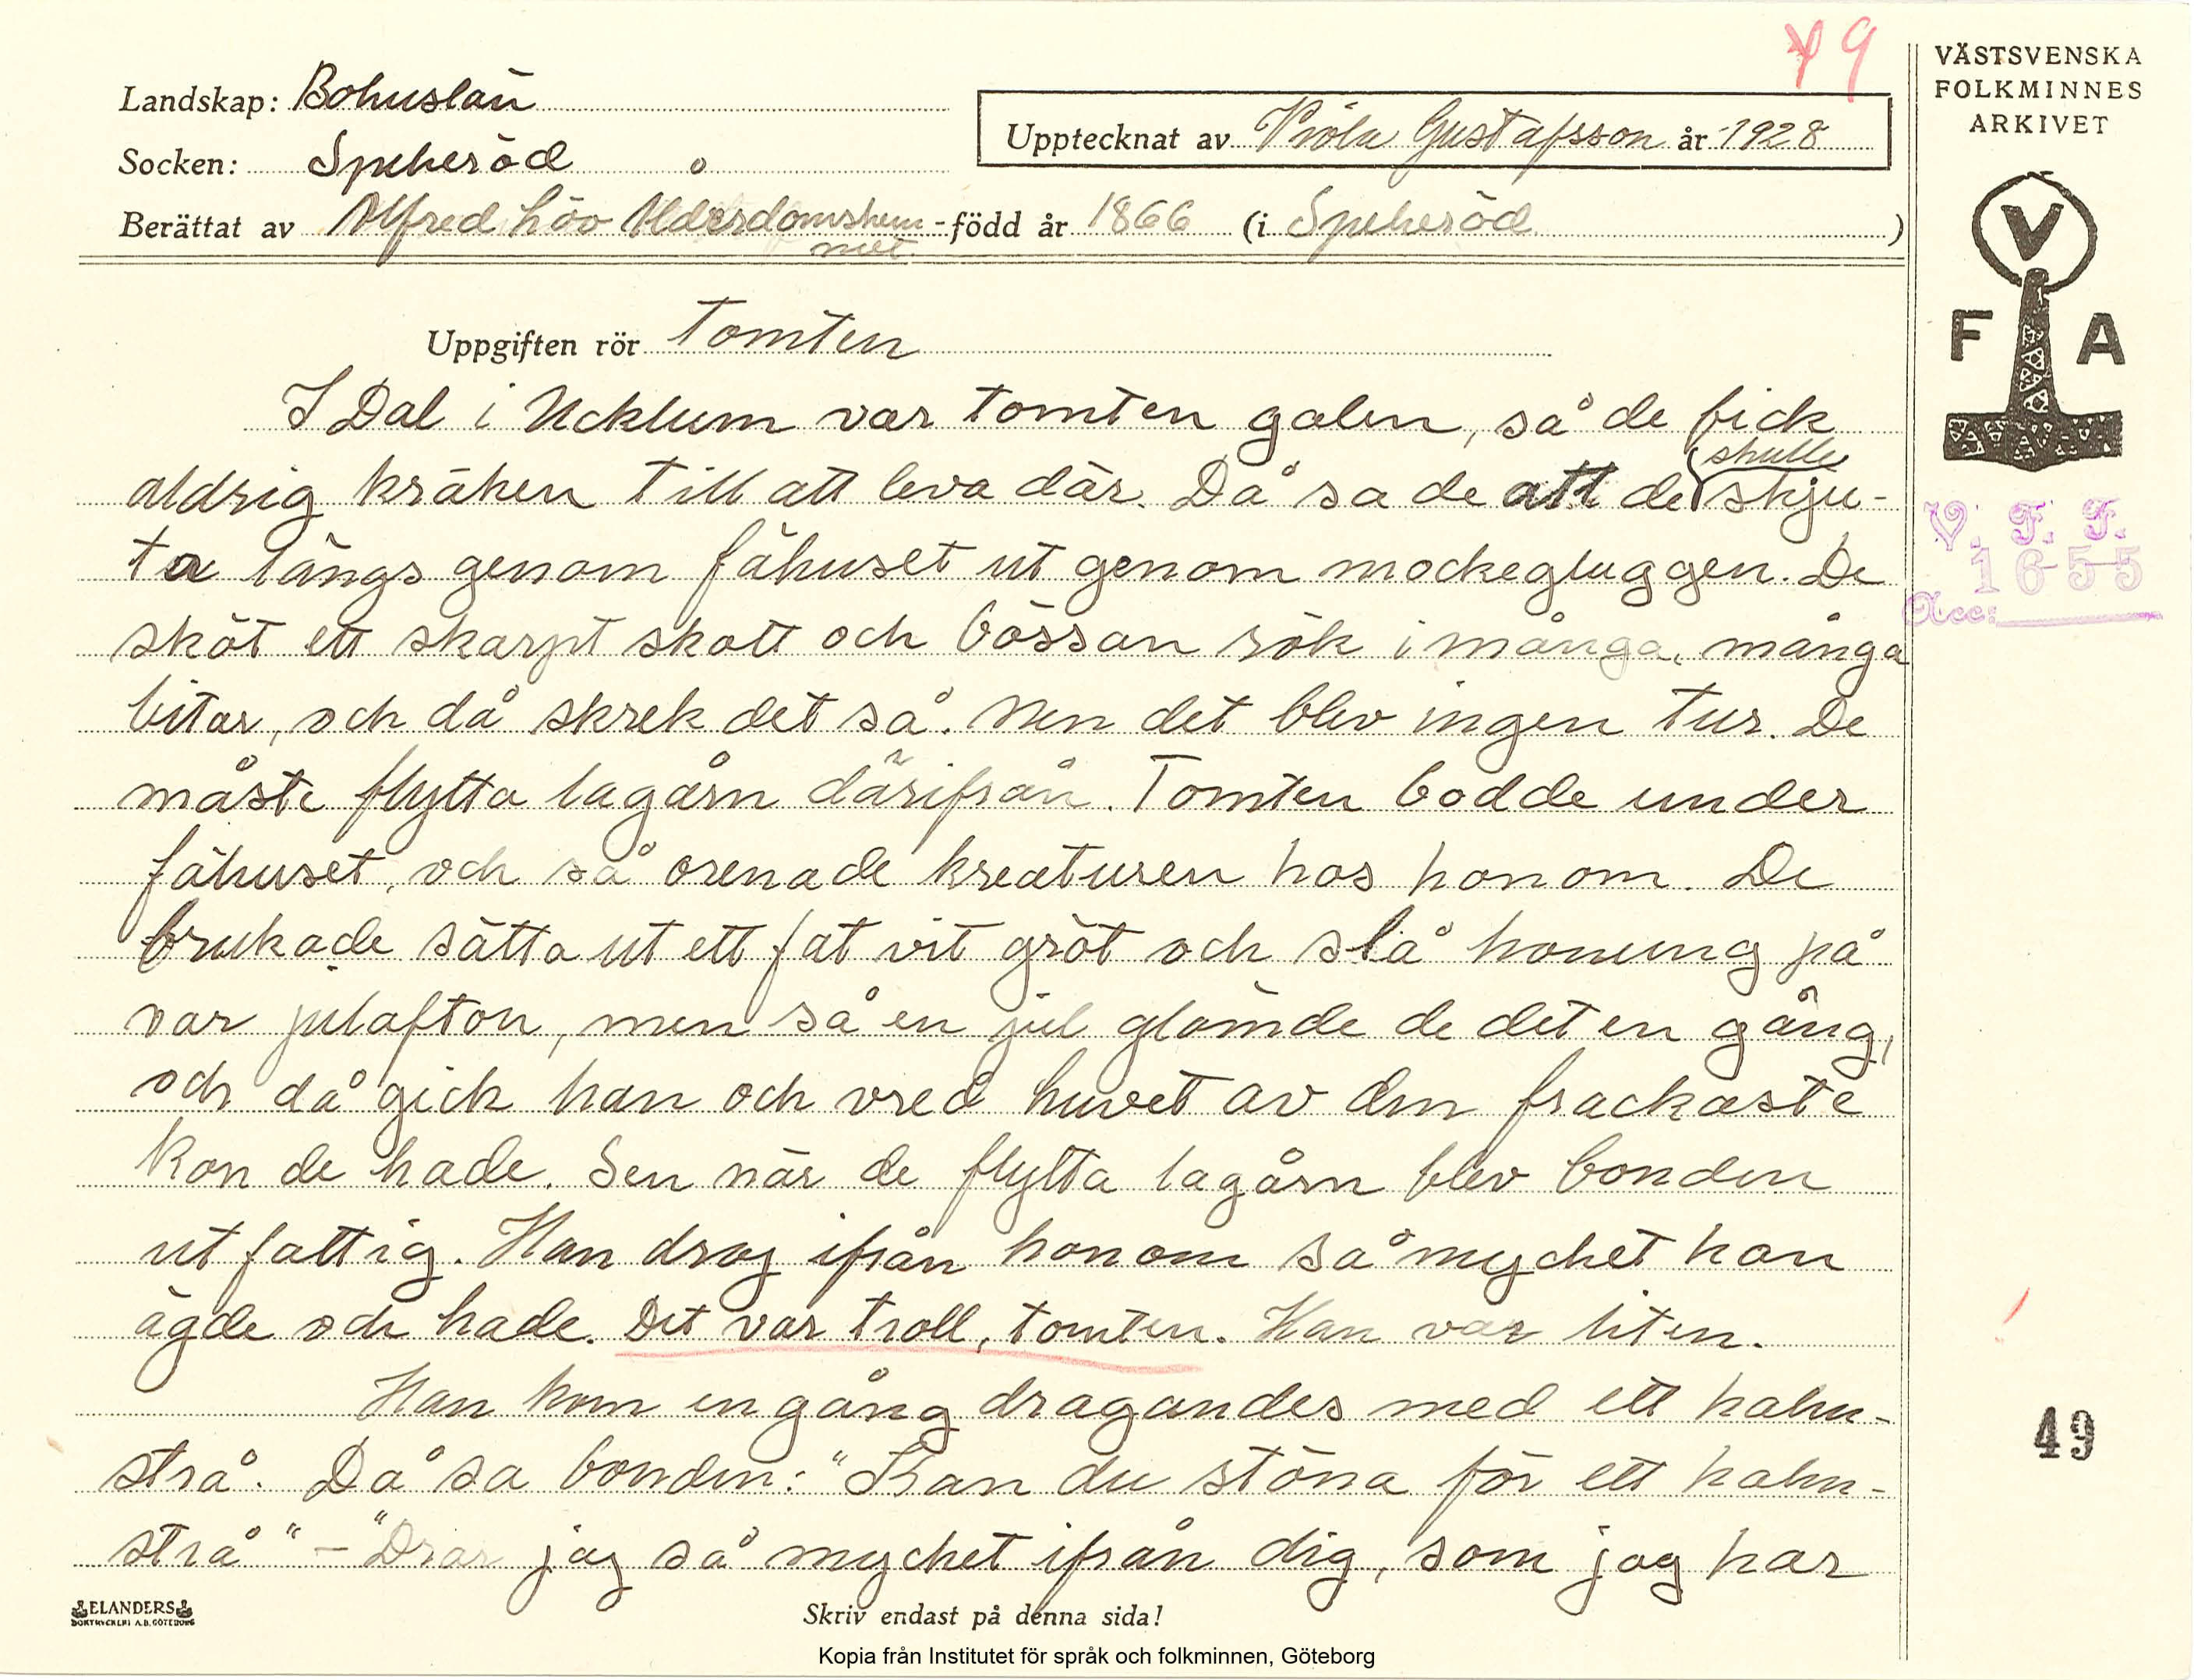 49
Landskap: Bohuslän
Socken: Spekeröd
Upptecknat av Viola Gustafsson år 1928
Berättat av Alfred Löv Ålderdomshem-
met. född år 1866 (i Spekeröd)
VÄSTSVENSKA
FOLKMINNES
ARKIVET
V
F A
V. F. F.
1655
Acc:
Uppgiften rör Tomten
I Dal i Ucklum var tomten galen, så de fick
aldrig kräken till att leva där. Då sa de att de skulle skju-
ta längs genom fähuset ut genom mockegluggen. De
sköt ett skarpt skott och bössan rök i många, många
bitar, och då skrek det så. Men det blev ingen tur. De
måste flytta lagårn därifrån. Tomten bodde under
fähuset, och så orenade kreaturen hos honom. De
brukade sätta ut ett fat vit gröt och slå honung på
var julafton, men så en jul glömde de det en gång,
och då gick han och vred huvet av den frackaste
kon de hade. Sen när de flytta lagårn blev bonden
utfattig. Han drog ifrån honom så mycket han
ägde och hade. Det var troll, tomten. Han var liten.
Han kom en gång dragandes med ett halm-
strå. Då sa bonden: "Kan du stöna för ett halm-
strå" – "Drar jag så mycket ifrån dig, som jag har
49
ELANDERS
BOKTRYCKERI A.B. GÖTEBORG
Skriv endast på denna sida!
Kopia från Institutet för språk och folkminnen, Göteborg